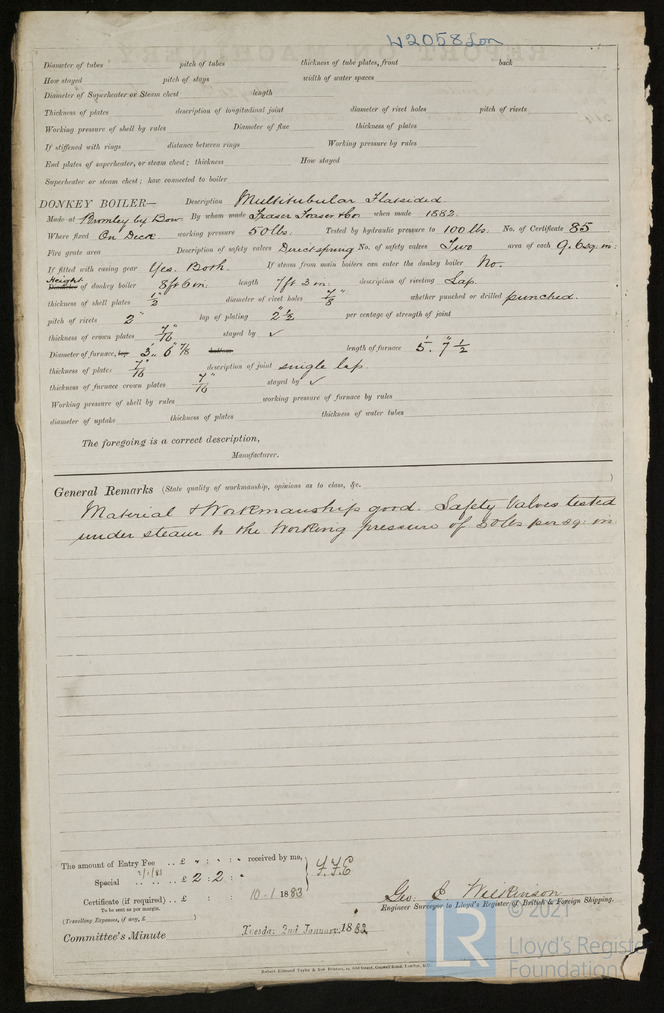 W2058 Lon
Diameter of tubes pitch of tubes thickness of tube plates, front back
How stayed pitch of stays width of water spaces
Diameter of Superheater or Steam chest length
Thickness of plates description of longitudinal joint diameter of rivet holes pitch of rivets
Working pressure of shell by rules Diameter of flue thickness of plates
If stiffened with rings distance between rings Working pressure by rules
End plates of superheater, or steam chest; thickness How stayed
Superheater or steam chest; how connected to boiler
DONKEY BOILER— Description Multitubular Flatsided
Made at Bromley by Bow By whom made Fraser Fraser & Co when made 1882.
Where fixed On Deck working pressure 50 lbs. Tested by hydraulic pressure to 100 lbs. No. of Certificate 85
Fire grate area Description of safety valves Direct spring No. of safety valves Two area of each 9.6 sq. in:
If fitted with easing gear Yes. Both. If steam from main boilers can enter the donkey boiler No.
Height
Diameter of donkey boiler 8 ft 6 in. length 7 ft 3 in. description of riveting Lap.
thickness of shell plates 1/2" diameter of rivet holes 7/8" whether punched or drilled punched.
pitch of rivets 2" lap of plating 2" 1/2 per centage of strength of joint
thickness of crown plates 7/16" stayed by ✓
Diameter of furnace, top 3' 6" 7/8 bottom length of furnace 5' 7" 1/2
thickness of plates 7/16" description of joint single lap
thickness of furnace crown plates 7/16" stayed by ✓
Working pressure of shell by rules working pressure of furnace by rules
diameter of uptake thickness of plates thickness of water tubes
The foregoing is a correct description,
Manufacturer.
General Remarks (State quality of workmanship, opinions as to class, &c. )
Material & Workmanship good. Safety Valves tested
under steam to the Working pressure of 50 lbs per sq: in
The amount of Entry Fee .. £ " : " : " received by me,
2/1/83
Special .. £ 2 : 2 : "
Certificate (if required) .. £ : : 10 . 1 1883
To be sent as per margin.
(Travelling Expenses, if any, £ )
Geo. E Wilkinson
Engineer Surveyor to Lloyd's Register of British & Foreign Shipping.
Committee's Minute Tuesday 2nd January 1883
Robert Edmund Taylor & Son Printers, 19, Old Street, Goswell Road, London, E.C.
LR © 2021
Lloyd's Register
Foundation